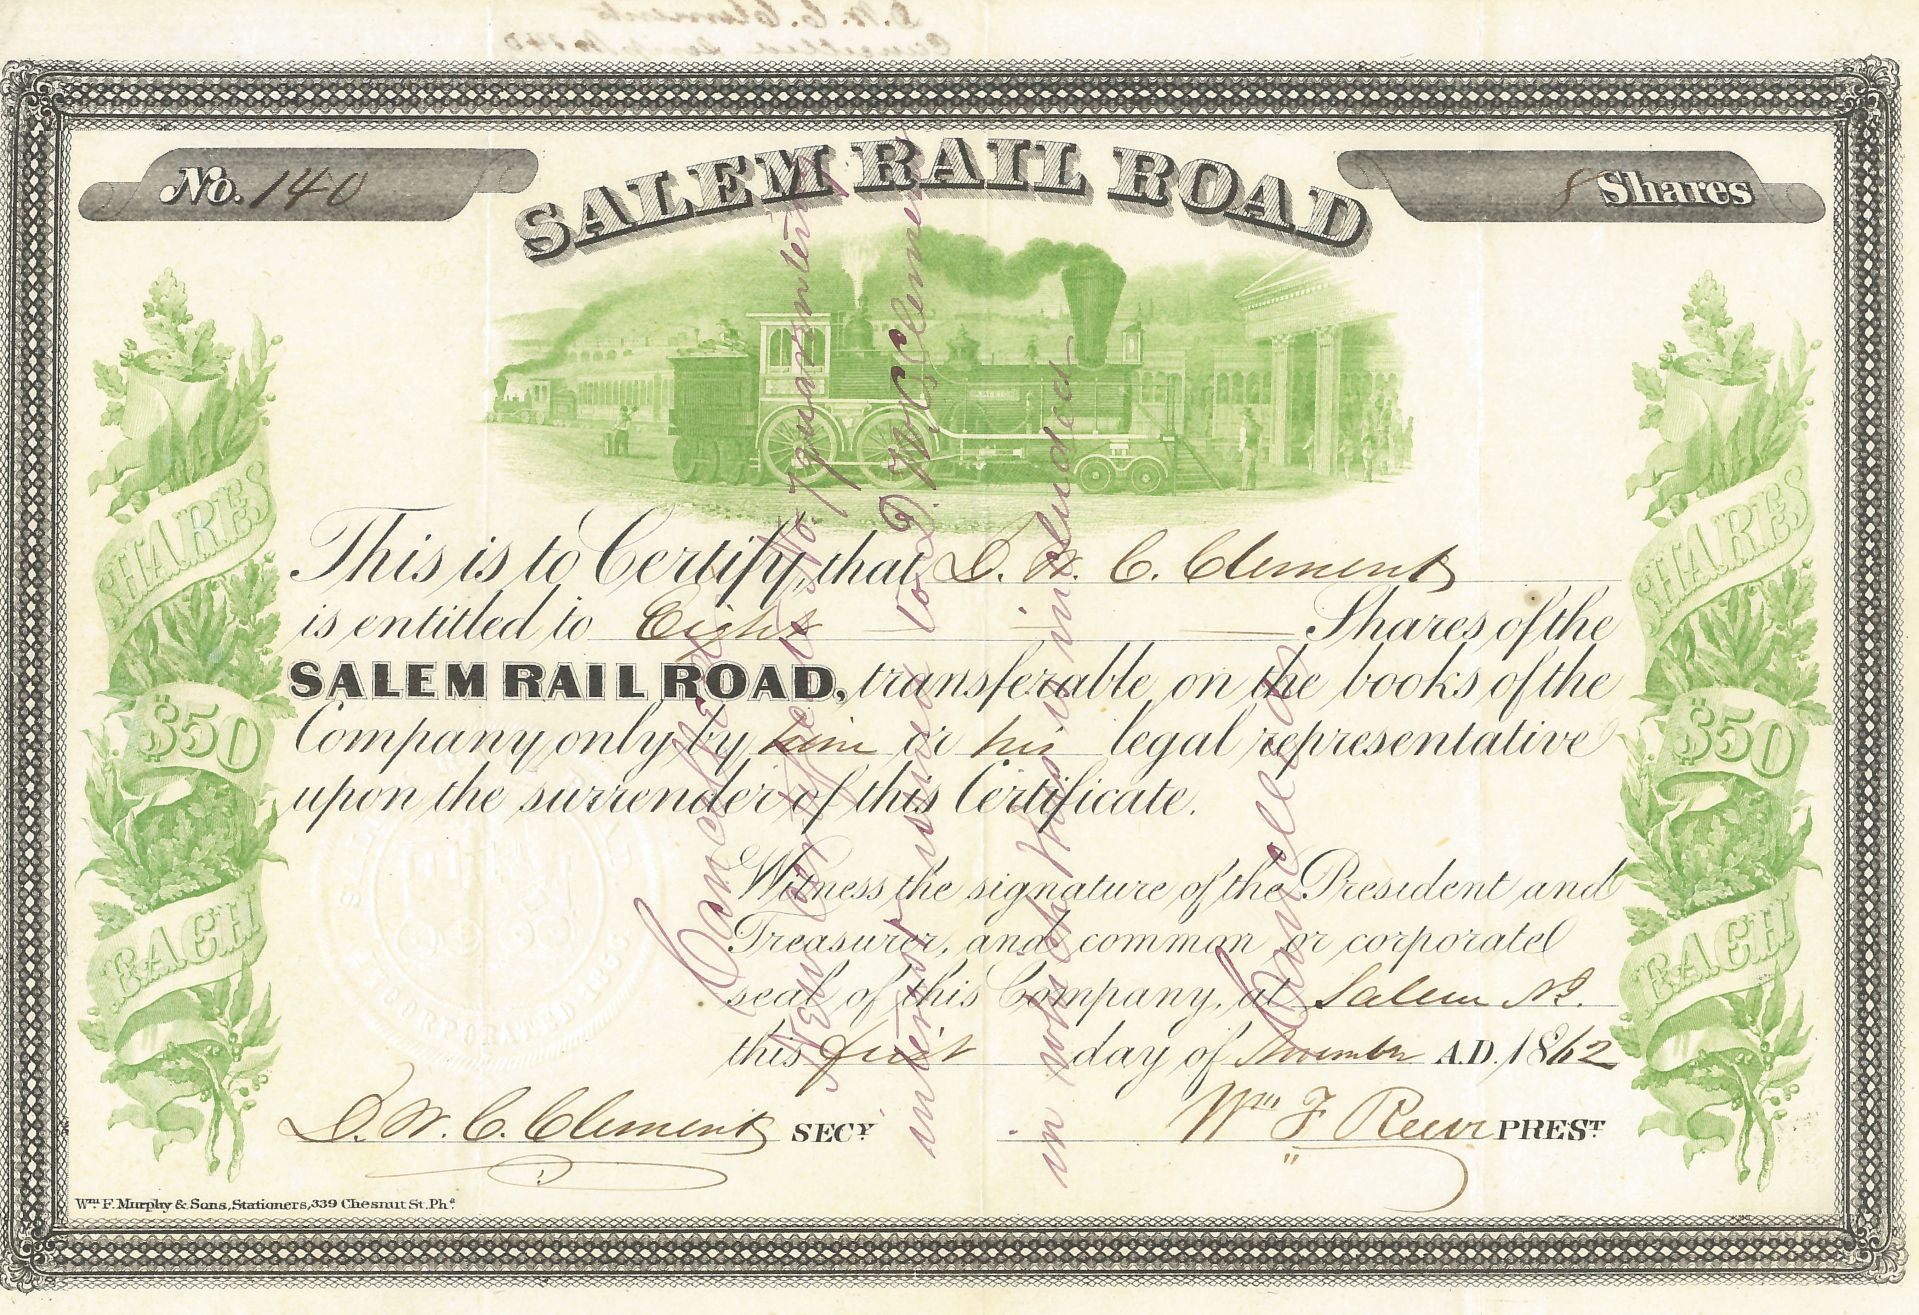 D. W. C. Clement
No. 140
SALEM RAIL ROAD
8 Shares
This is to Certify, that D. W. C. Clement
is entitled to Eight Shares of the
SALEM RAIL ROAD, transferable on the books of the
Company only by him or his legal representative
upon the surrender of this Certificate.
Witness the signature of the President and
Treasurer, and common or corporate
seal of this Company, at Salem NJ.
this first day of November A.D. 1862
D. W. C. Clement SECY.
Wm F. Reeve PREST
Wm. F. Murphy & Sons, Stationers, 339 Chesnut St. Pha.
SHARES
$50
EACH
SHARES
$50
EACH
INCORPORATED 1856
Cancelled
New Certificate No
issued to D W C Clement
in which this is included
Cancelled